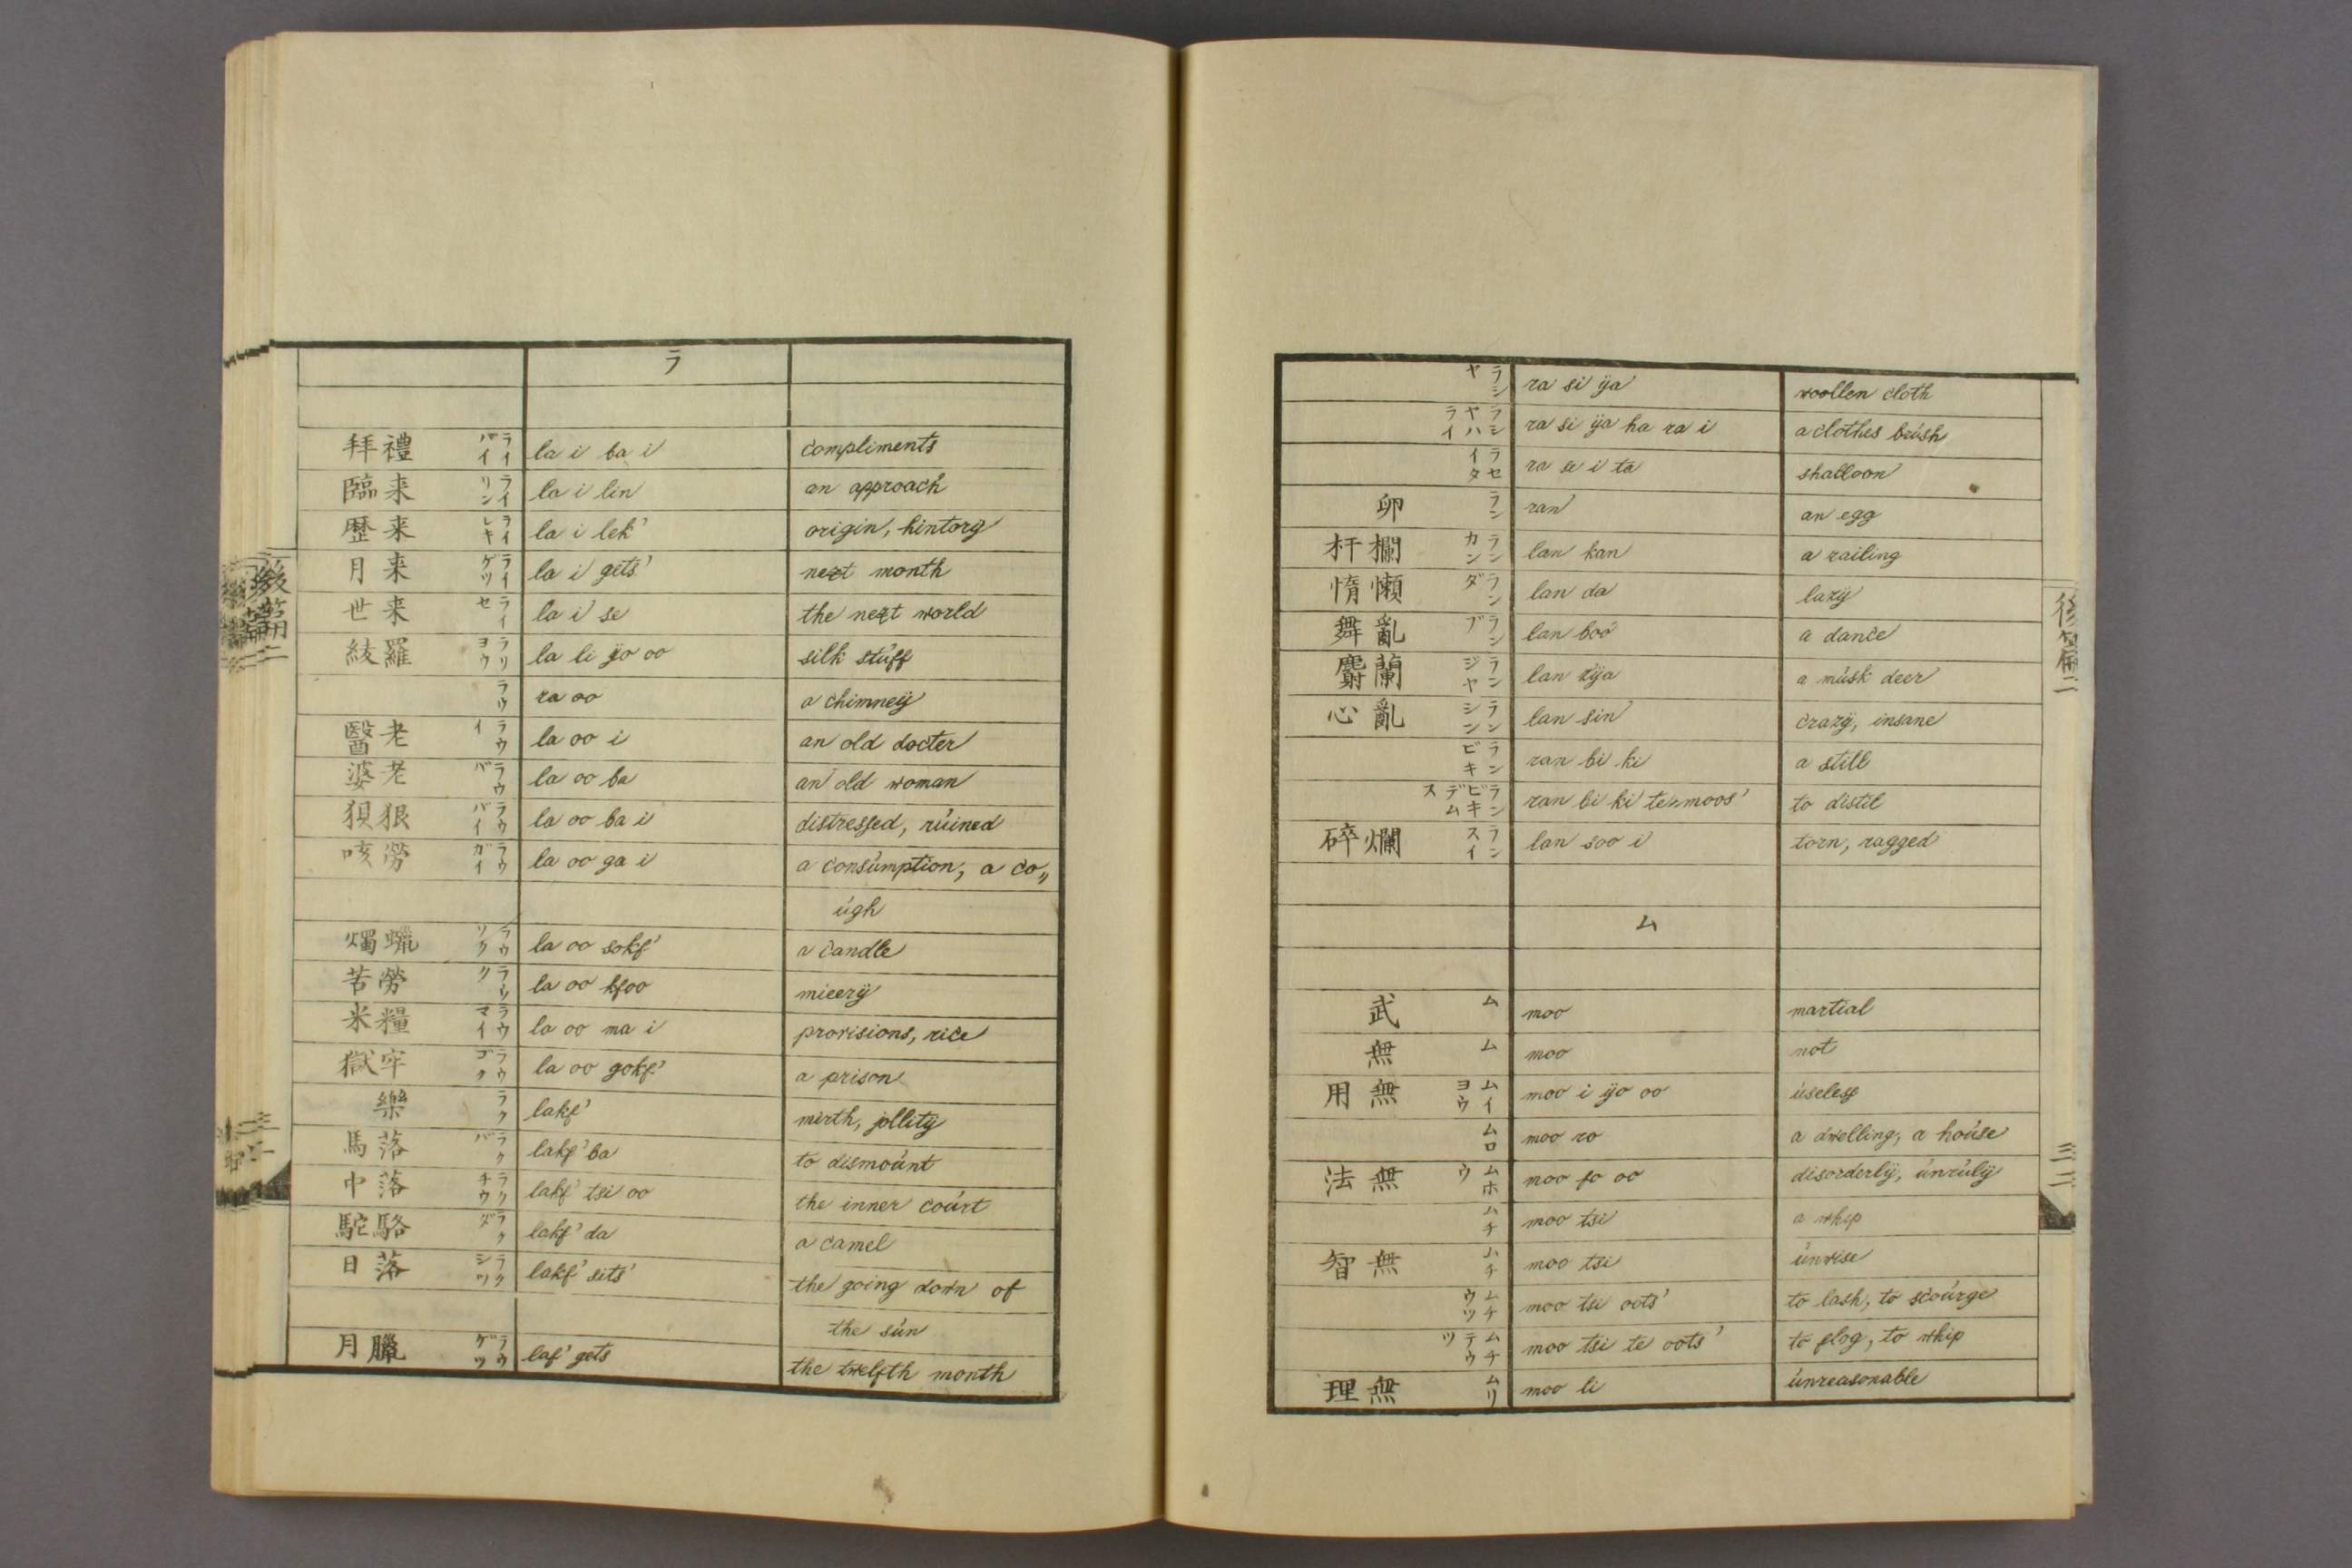 ラ
拜禮 ライバイ la i ba i compliments
臨来 ライリン la i lin an approach
歷来 ライレキ la i lek' origin, hintorg
月来 ライゲツ la i gets' next month
世来 ライセ la i se the next world
綾羅 ラリヨウ la li ÿo oo silk stuff
ラウ ra oo a chimneÿ
醫老 ラウイ la oo i an old docter
婆老 ラウバ la oo ba an old woman
狽狼 ラウバイ la oo ba i distressed, ruined
咳勞 ラウガイ la oo ga i a consumption, a co„
ugh
燭蠟 ラウソク la oo sokf' a candle
苦勞 ラウク la oo kfoo mieerÿ
米糧 ラウマイ la oo ma i provisions, rice
獄牢 ラウゴク la oo gokf' a prison
樂 ラク lakf' mirth, jollitÿ
馬落 ラクバ lakf' ba to dismount
中落 ラクチウ lakf' tsi oo the inner court
駝駱 ラクダ lakf' da a camel
日落 ラクシツ lakf' sits' the going down of
the sun
月臘 ラウゲツ laf' gets the twelfth month
後篇二
ラシヤ ra si ÿa woollen cloth
ラシヤハライ ra si ÿa ha ra i a clothes brush
ラセイタ ra se i ta shalloon
卵 ラン ran an egg
杆欄 ランカン lan kan a railing
惰懶 ランダ lan da lazÿ
舞亂 ランブ lan boo a dance
麝蘭 ランジヤ lan zÿa a musk deer
心亂 ランシン lan sin crazÿ, insane
ランビキ ran bi ki a still
ランビキデムス ran bi ki te moos' to distil
碎爛 ランスイ lan soo i torn, ragged
ム
武 ム moo martial
無 ム moo not
用無 ムイヨウ moo i ÿo oo useless
ムロ moo ro a dwelling, a house
法無 ムホウ moo fo oo disorderlÿ, unrulÿ
ムチ moo tsi a whip
智無 ムチ moo tsi unwise
ムチウツ moo tsi oots' to lash, to scourge
ムチテウツ moo tsi te oots' to flog, to whip
理無 ムリ moo li unreasonable
後篇二
三二